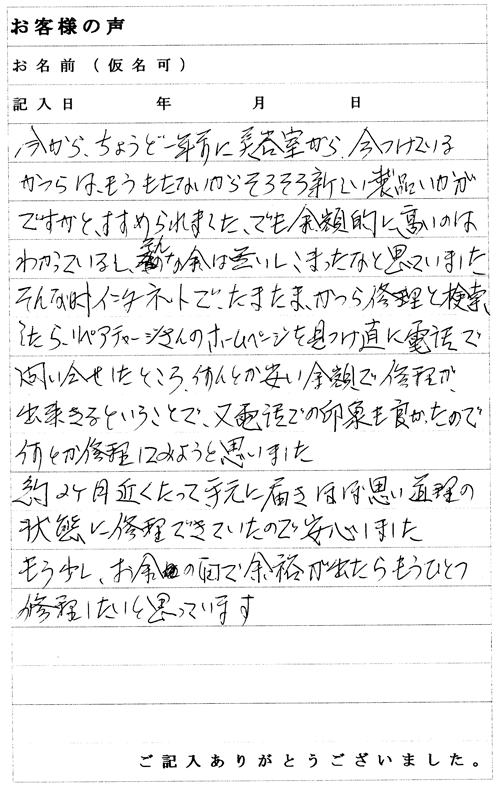 お客様の声
お名前（仮名可）
記入日　年　月　日
今から、ちょうど一年前に美容室から、今つけている
かつらは、もうもたないからそろそろ新しい製品いかが
ですかと、すすめられました、でも金額的に高いのは
わかっているし、そんな金は無いしこまったなと思っていました
そんな時インターネットで、たまたま、かつら修理と検索
したら、リペアチャージさんのホームページを見つけ直に電話で
問い合せしたところ、何んとか安い金額で修理が、
出来きるということで、又電話での印象も良かったので
何とか修理にだそうと思いました
約2ヶ月近くたって手元に届きほぼ思い道理の
状態に修理できていたので安心しました
もう少し、お金の面で余裕が出たらもうひとつ
修理したいと思っています
ご記入ありがとうございました。